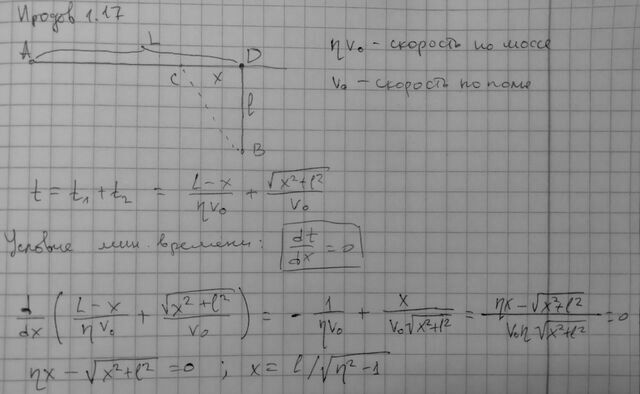 Иродов 1.17
L
A C x D
l
B
ηv₀ - скорость по шоссе
v₀ - скорость по полю
t = t₁ + t₂ = (L-x)/(ηv₀) + √(x²+l²)/v₀
Условие мин. времени: dt/dx = 0
d/dx ((L-x)/(ηv₀) + √(x²+l²)/v₀) = - 1/(ηv₀) + x/(v₀√(x²+l²)) = (ηx - √(x²+l²))/(v₀η√(x²+l²)) = 0
ηx - √(x²+l²) = 0 ; x = l/√(η²-1)